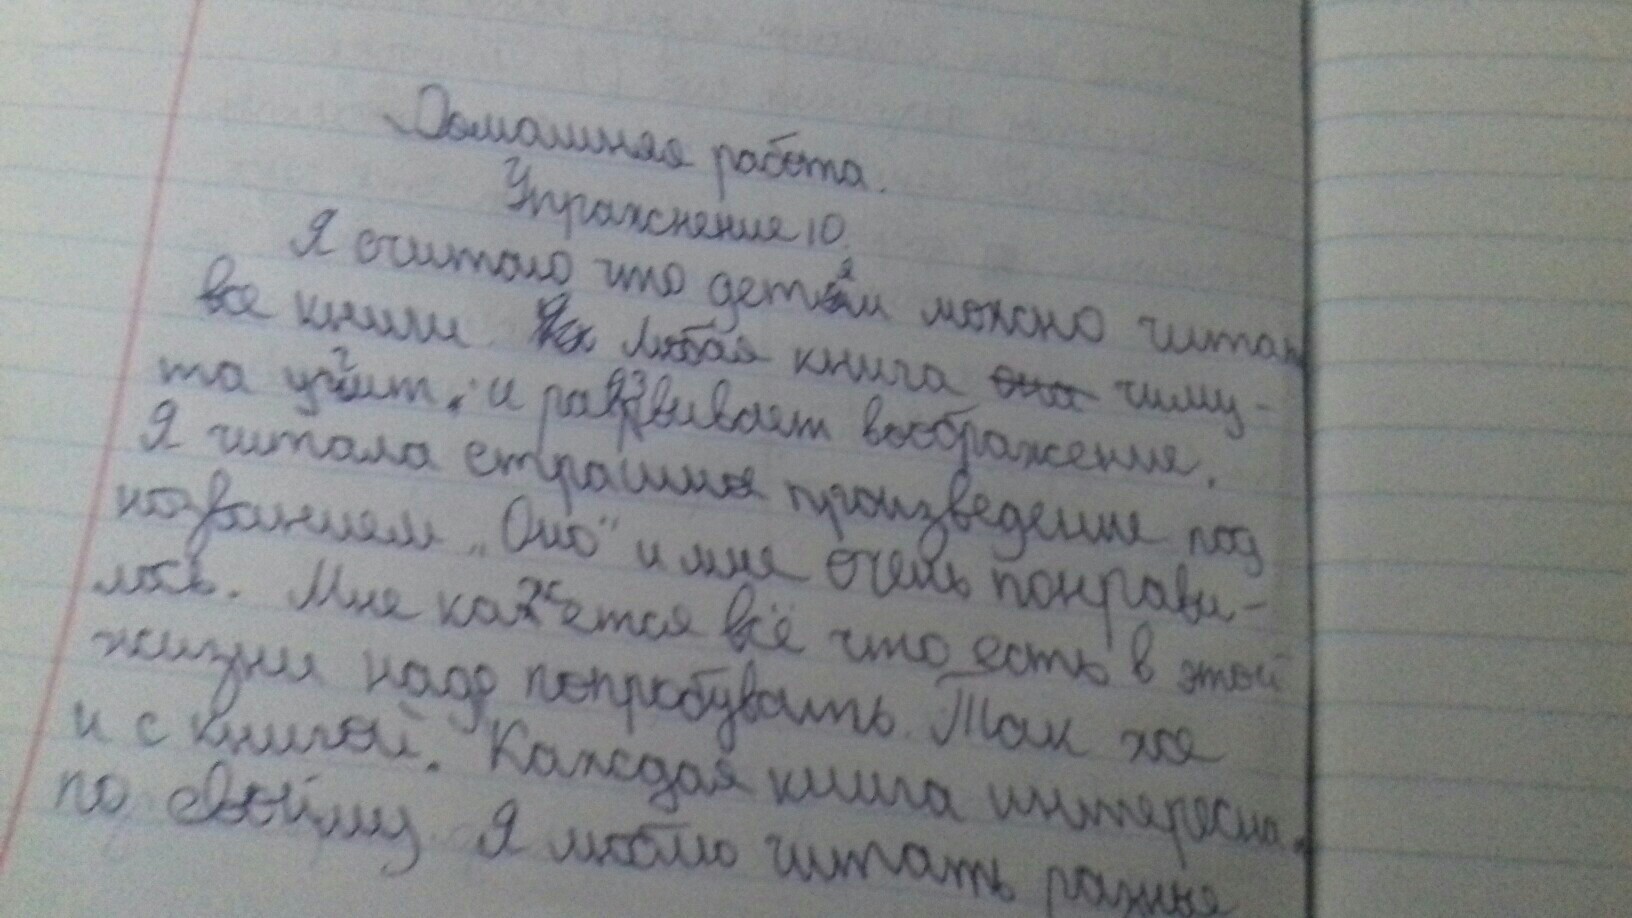 Домашняя работа.
Упражнение 10.
Я считаю что детям можно читать
все книги. Любая книга она чиму-
та учит. и развивает воображение.
Я читала страшное произведение под
названием „Оно" и мне очень понрави-
лось. Мне кажется всё что есть в этой
жизни надо попробувать. Так же
и с книгой. Каждая книга интересна
по свойму. Я люблю читать разные